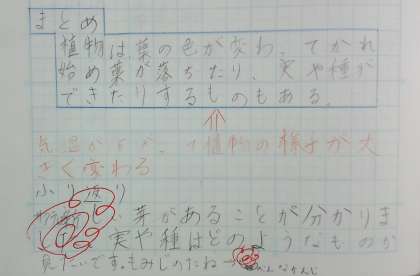 まとめ
植物は、葉の色が変わってかれ
始め葉が落ちたり、実や種が
できたりするものもある。
気温が下が 植物の様子が大
きく変わる
ふり返り
芽があることが分かりま
実や種はどのようなものか
見たいです。もみじのたね